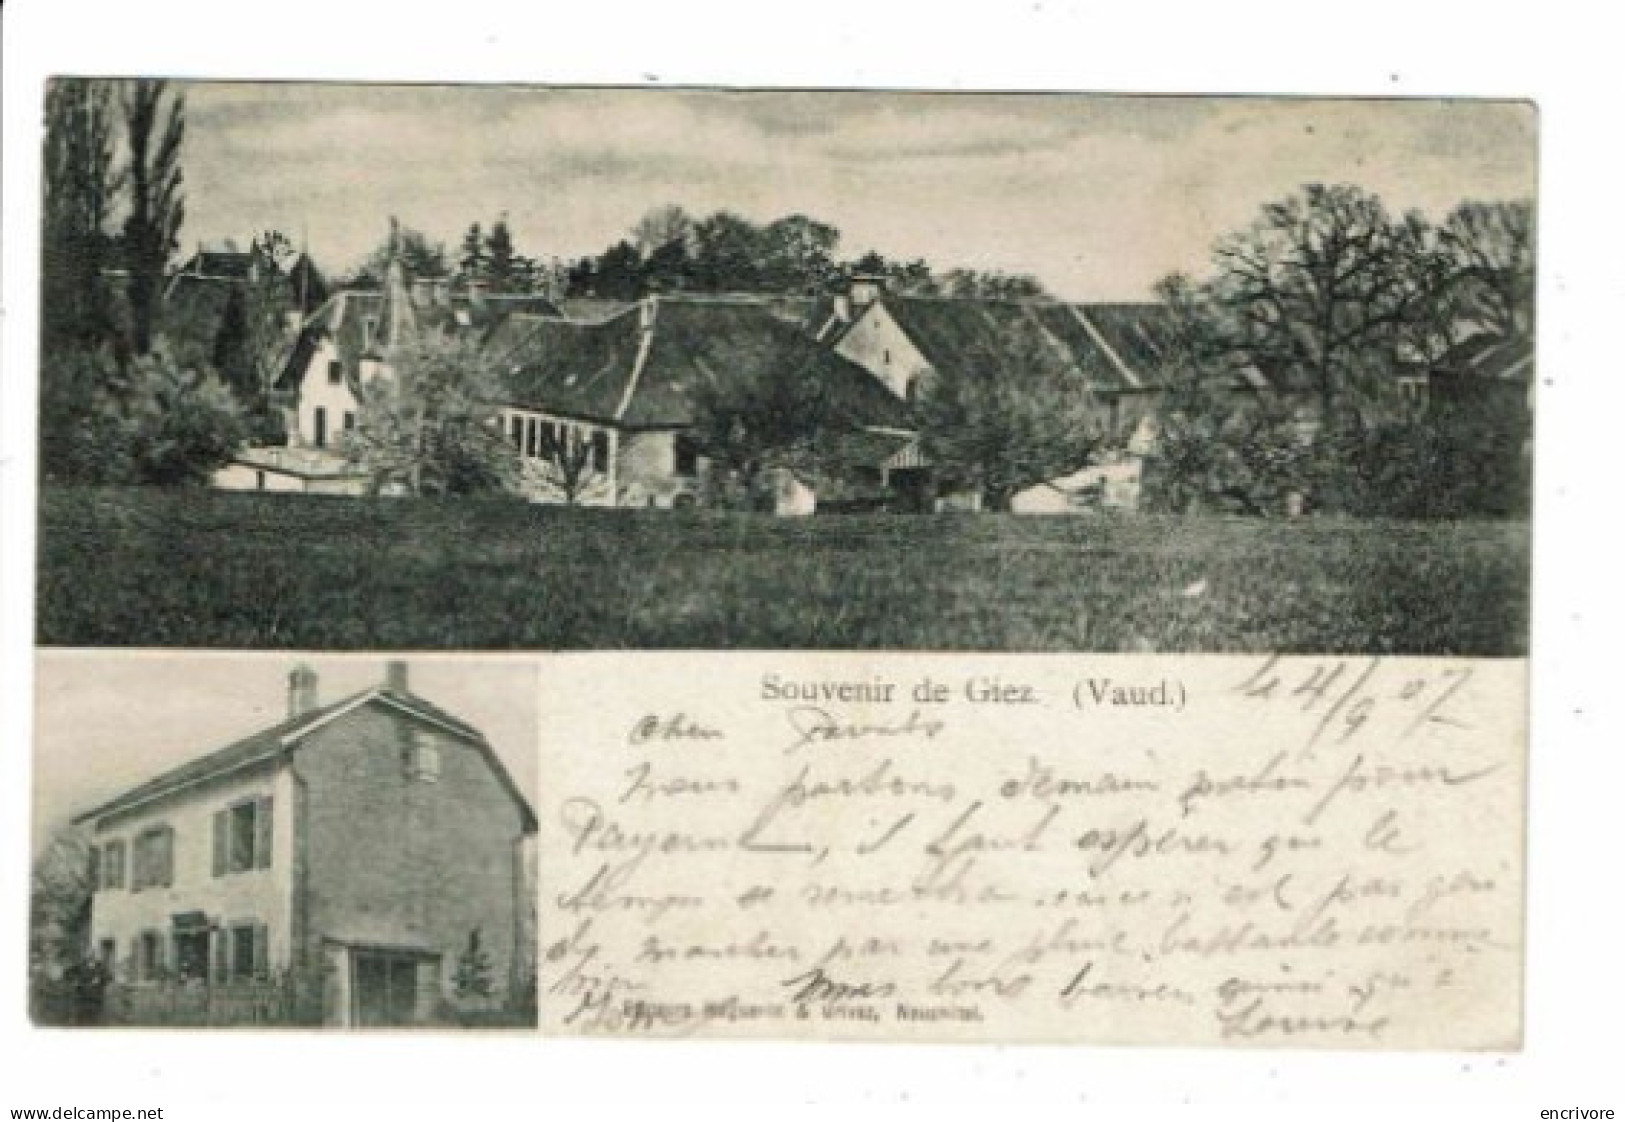 Souvenir de Giez. (Vaud.)
le 4/9 07
Cher Parents
Nous partons demain matin pour
Payerne, il faut espérer que le
temps se remettra, car ce n'est pas gai
de marcher par une pluie battante comme
bien
Mes bons baisers ainsi qu'à
Louise
& Grivaz, Neuchâtel.
www.delcampe.net
encrivore